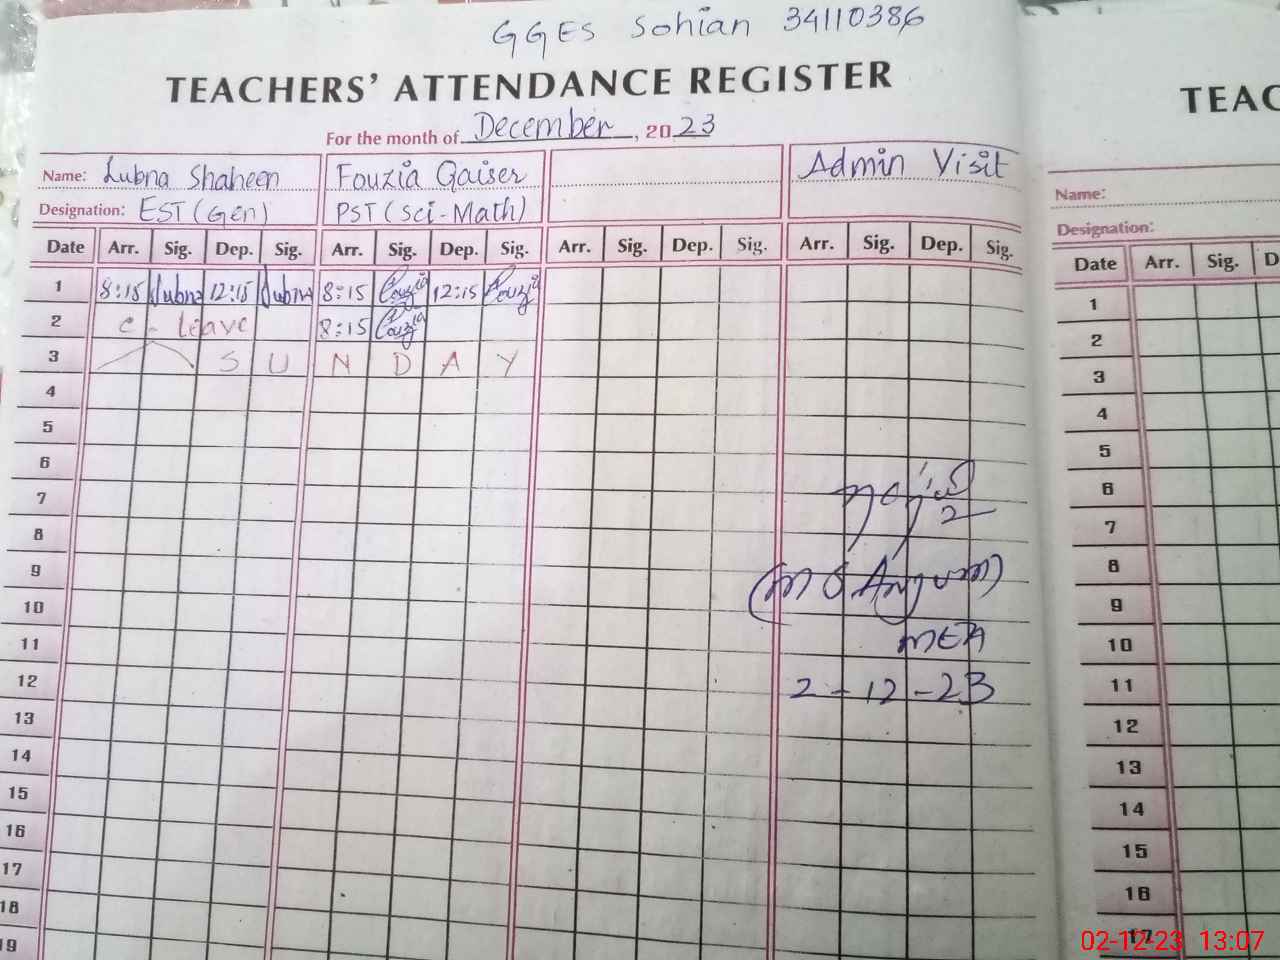 GGES Sohian 34110386
TEACHERS' ATTENDANCE REGISTER
For the month of December, 2023
Name: Lubna Shaheen Fouzia Qaiser Admin Visit
Designation: EST (Gen) PST (Sci-Math)
Date Arr. Sig. Dep. Sig. Arr. Sig. Dep. Sig. Arr. Sig. Dep. Sig. Arr. Sig. Dep. Sig.
1 8:15 Lubna 12:15 Lubna 8:15 Fouzia 12:15 Fouzia
2 C-leave 8:15 Fouzia
3 SUNDAY
4
5
6
7
8
9 (M S Anjum)
10
11 MEA
12 2-12-23
13
14
15
16
17
18
19
TEAC
Name:
Designation:
Date Arr. Sig. D
1
2
3
4
5
6
7
8
9
10
11
12
13
14
15
16
17
02-12-23 13:07